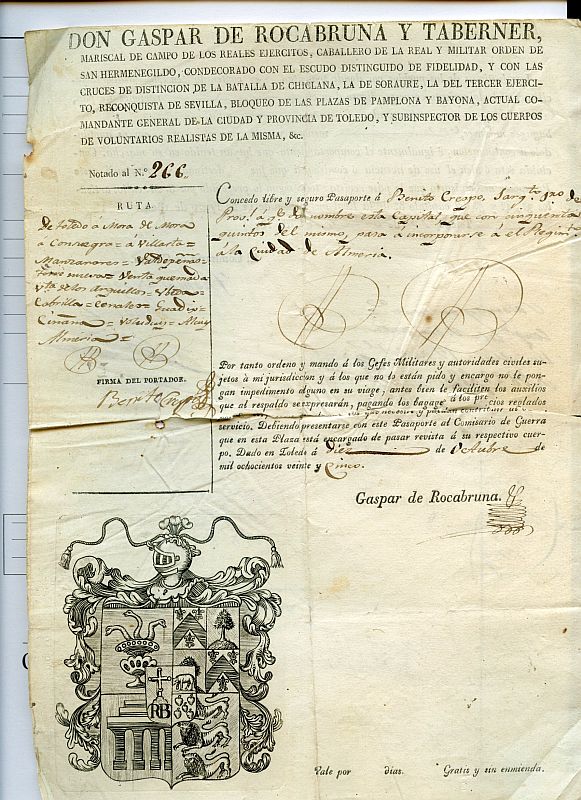 DON GASPAR DE ROCABRUNA Y TABERNER,
MARISCAL DE CAMPO DE LOS REALES EJERCITOS, CABALLERO DE LA REAL Y MILITAR ORDEN DE
SAN HERMENEGILDO, CONDECORADO CON EL ESCUDO DISTINGUIDO DE FIDELIDAD, Y CON LAS
CRUCES DE DISTINCION DE LA BATALLA DE CHICLANA, LA DE SORAURE, LA DEL TERCER EJERCI-
TO, RECONQUISTA DE SEVILLA, BLOQUEO DE LAS PLAZAS DE PAMPLONA Y BAYONA, ACTUAL CO-
MANDANTE GENERAL DE LA CIUDAD Y PROVINCIA DE TOLEDO, Y SUBINSPECTOR DE LOS CUERPOS
DE VOLUNTARIOS REALISTAS DE LA MISMA, &c.
Notado al N.º 266
RUTA
de toledo á Mora de Mora
á Consuegra = á Villarta =
Manzanares = Valdepeñas =
Venta quemada
Ubeda =
Cabrilla = Guadix =
Almeria =
FIRMA DEL PORTADOR.
Benito Crespo
Concedo libre y seguro Pasaporte á Benito Crespo, Sarg.to 1.ro de
esta Capital que con cinquenta
quintos del mismo, pasa á incorporarse á el Regim.to
á la Ciudad de Almeria.
Por tanto ordeno y mando á los Gefes Militares y autoridades civiles su-
jetos á mi jurisdiccion y á los que no lo están pido y encargo no le pon-
gan impedimento alguno en su viage, antes bien le faciliten los auxilios
que al respaldo se expresarán, pagando los bagages á los precios reglados
que necesite y podrian contribuir al
servicio. Debiendo presentarse con este Pasaporte al Comisario de Guerra
que en esta Plaza está encargado de pasar revista á su respectivo cuer-
po. Dado en Toledo á diez de Octubre de
mil ochocientos veinte y Cinco.
Gaspar de Rocabruna.
RB
Vale por dias. Gratis y sin enmienda.